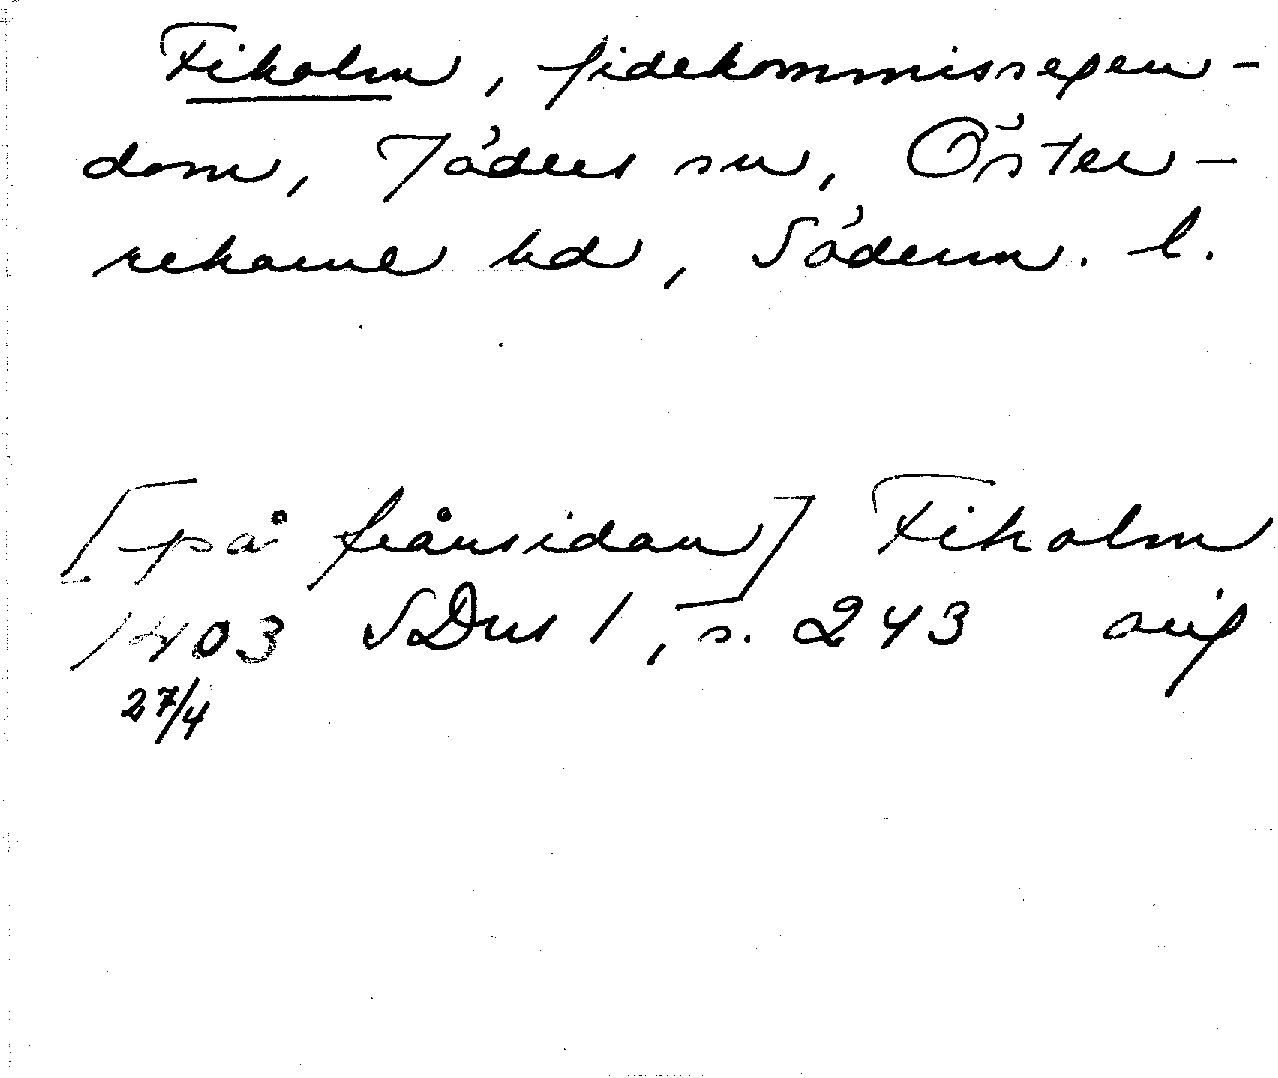 Fiholm, fideikommissegen-
dom, Jäders sn, Öster-
rekarne hd, Söderm. l.
[på frånsidan] Fiholm
1403 SDns 1, s. 243 orig
27/4